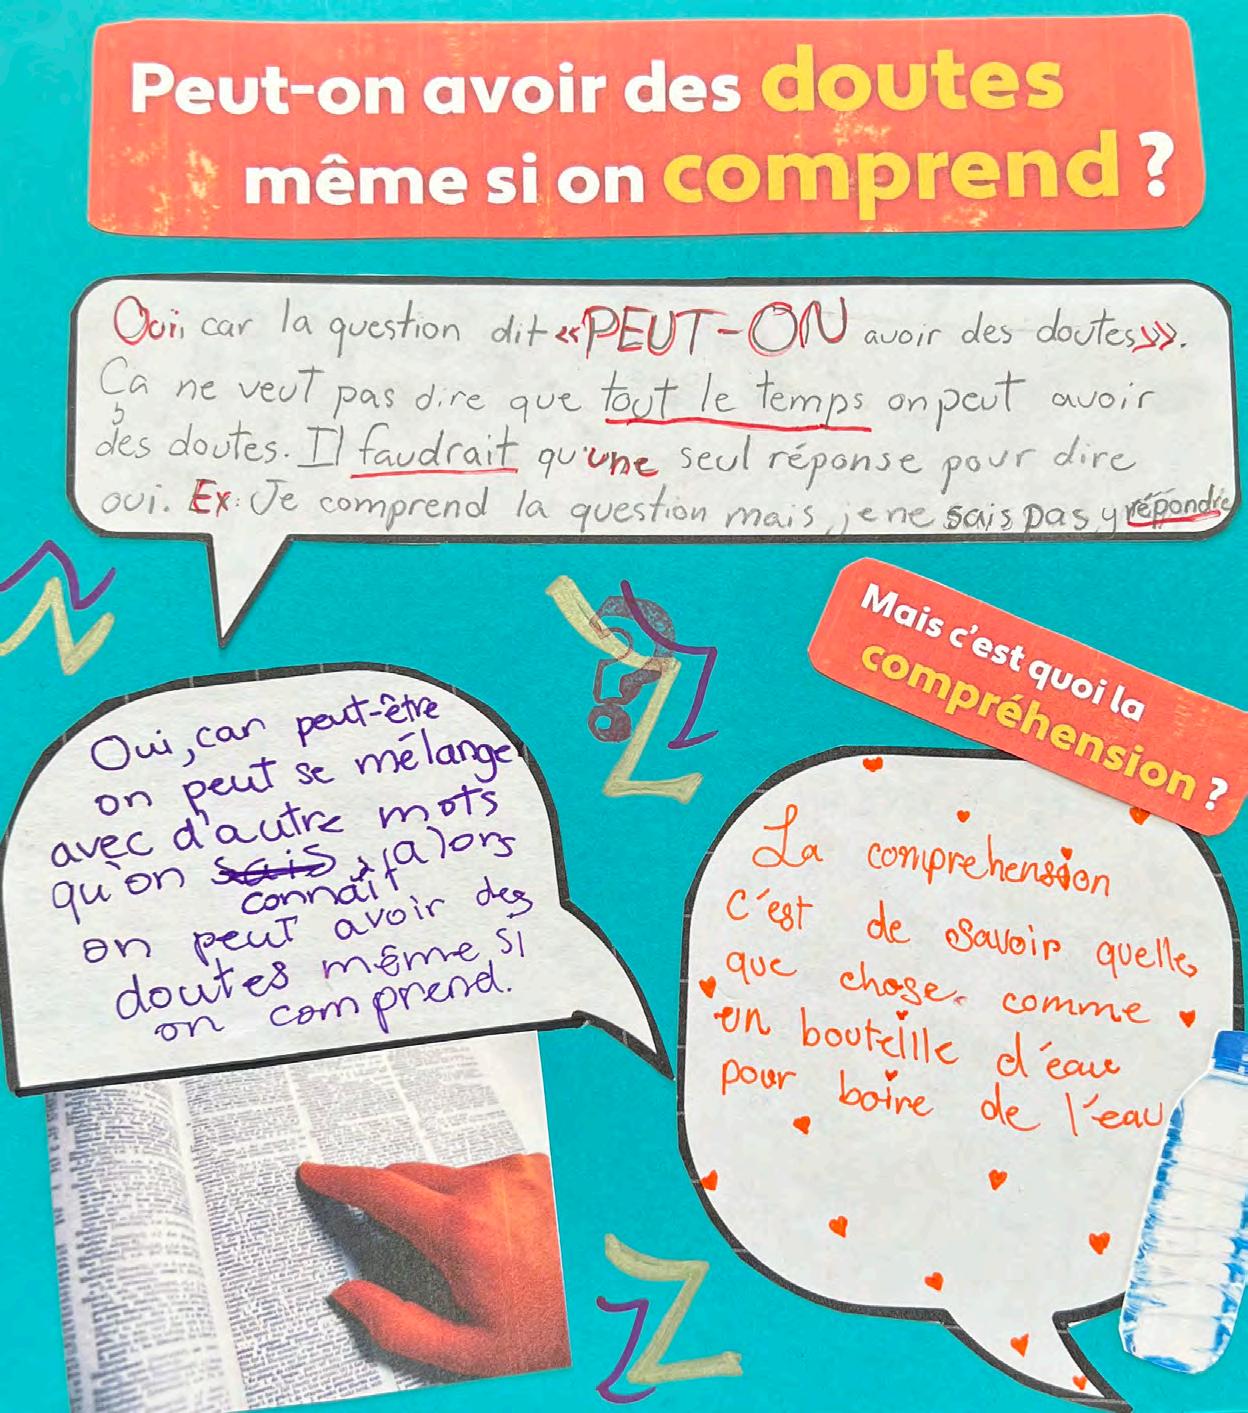 Peut-on avoir des doutes
même si on comprend ?
Oui, car la question dit «PEUT-ON avoir des doutes».
Ça ne veut pas dire que tout le temps on peut avoir
des doutes. Il faudrait qu'une seul réponse pour dire
oui. Ex: Je comprend la question mais, je ne sais pas y répondre
Mais c'est quoi la
compréhension ?
Oui, car peut-être
on peut se mélanger
avec d'autre mots
qu'on sais, alors
connaît
on peut avoir des
doutes même si
on comprend.
La comprehension
c'est de savoir quelle
que chose. comme
un bouteille d'eau
pour boire de l'eau